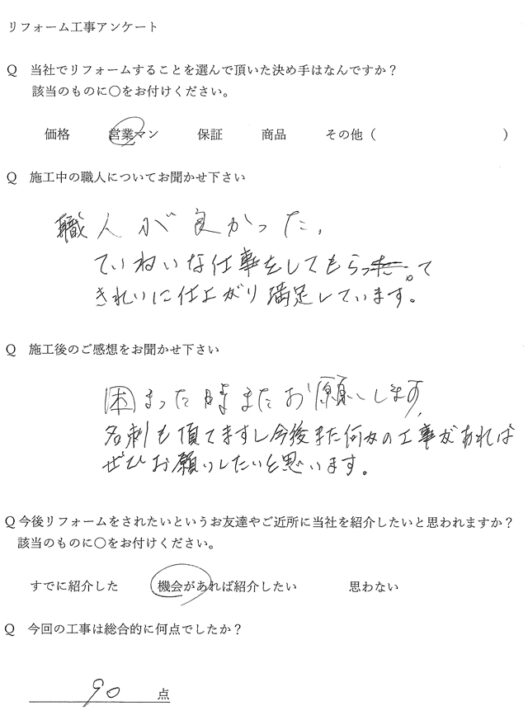 リフォーム工事アンケート
Q 当社でリフォームすることを選んで頂いた決め手はなんですか？
該当のものに〇をお付けください。
価格 営業マン 保証 商品 その他（ ）
Q 施工中の職人についてお聞かせ下さい
職人が良かった、
ていねいな仕事をしてもらって
きれいに仕上がり満足しています。
Q 施工後のご感想をお聞かせ下さい
困まった時またお願いします、
名刺も頂てますし今後また何かの工事があれば
ぜひお願いしたいと思います。
Q今後リフォームをされたいというお友達やご近所に当社を紹介したいと思われますか？
該当のものに〇をお付けください。
すでに紹介した 機会があれば紹介したい 思わない
Q 今回の工事は総合的に何点でしたか？
90 点